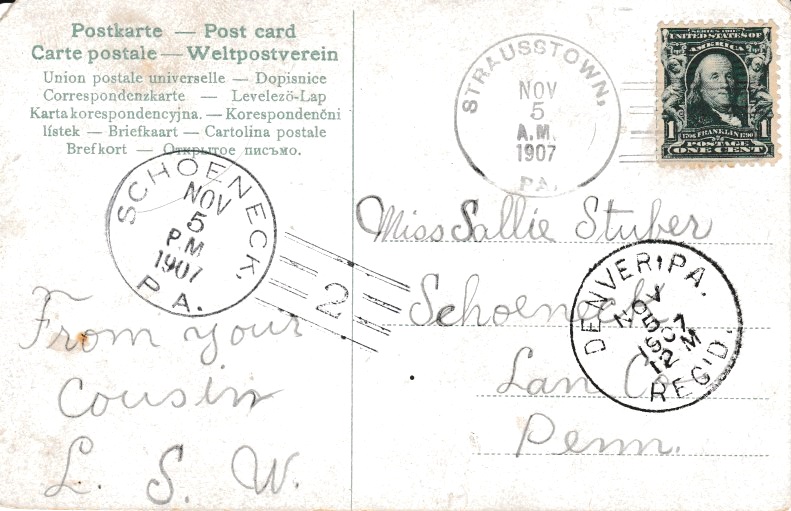 Postkarte — Post card
Carte postale — Weltpostverein
Union postale universelle — Dopisnice
Correspondenzkarte — Levelezö-Lap
Karta korespondencyjna. — Korespondenční
lístek — Briefkaart — Cartolina postale
Brefkort — Открытое письмо.
STRAUSSTOWN,
NOV
5
A.M.
1907
PA.
SERIES 1902
UNITED STATES OF
AMERICA
1 1706 FRANKLIN 1790 1
POSTAGE
ONE CENT
SCHOENECK,
NOV
5
PM
1907
PA.
2
Miss Sallie Stuber
Schoeneck
Lan Co
Penn.
DENVER, PA.
NOV
5
1907
12 M
REC'D.
From your
cousin
L. S. W.